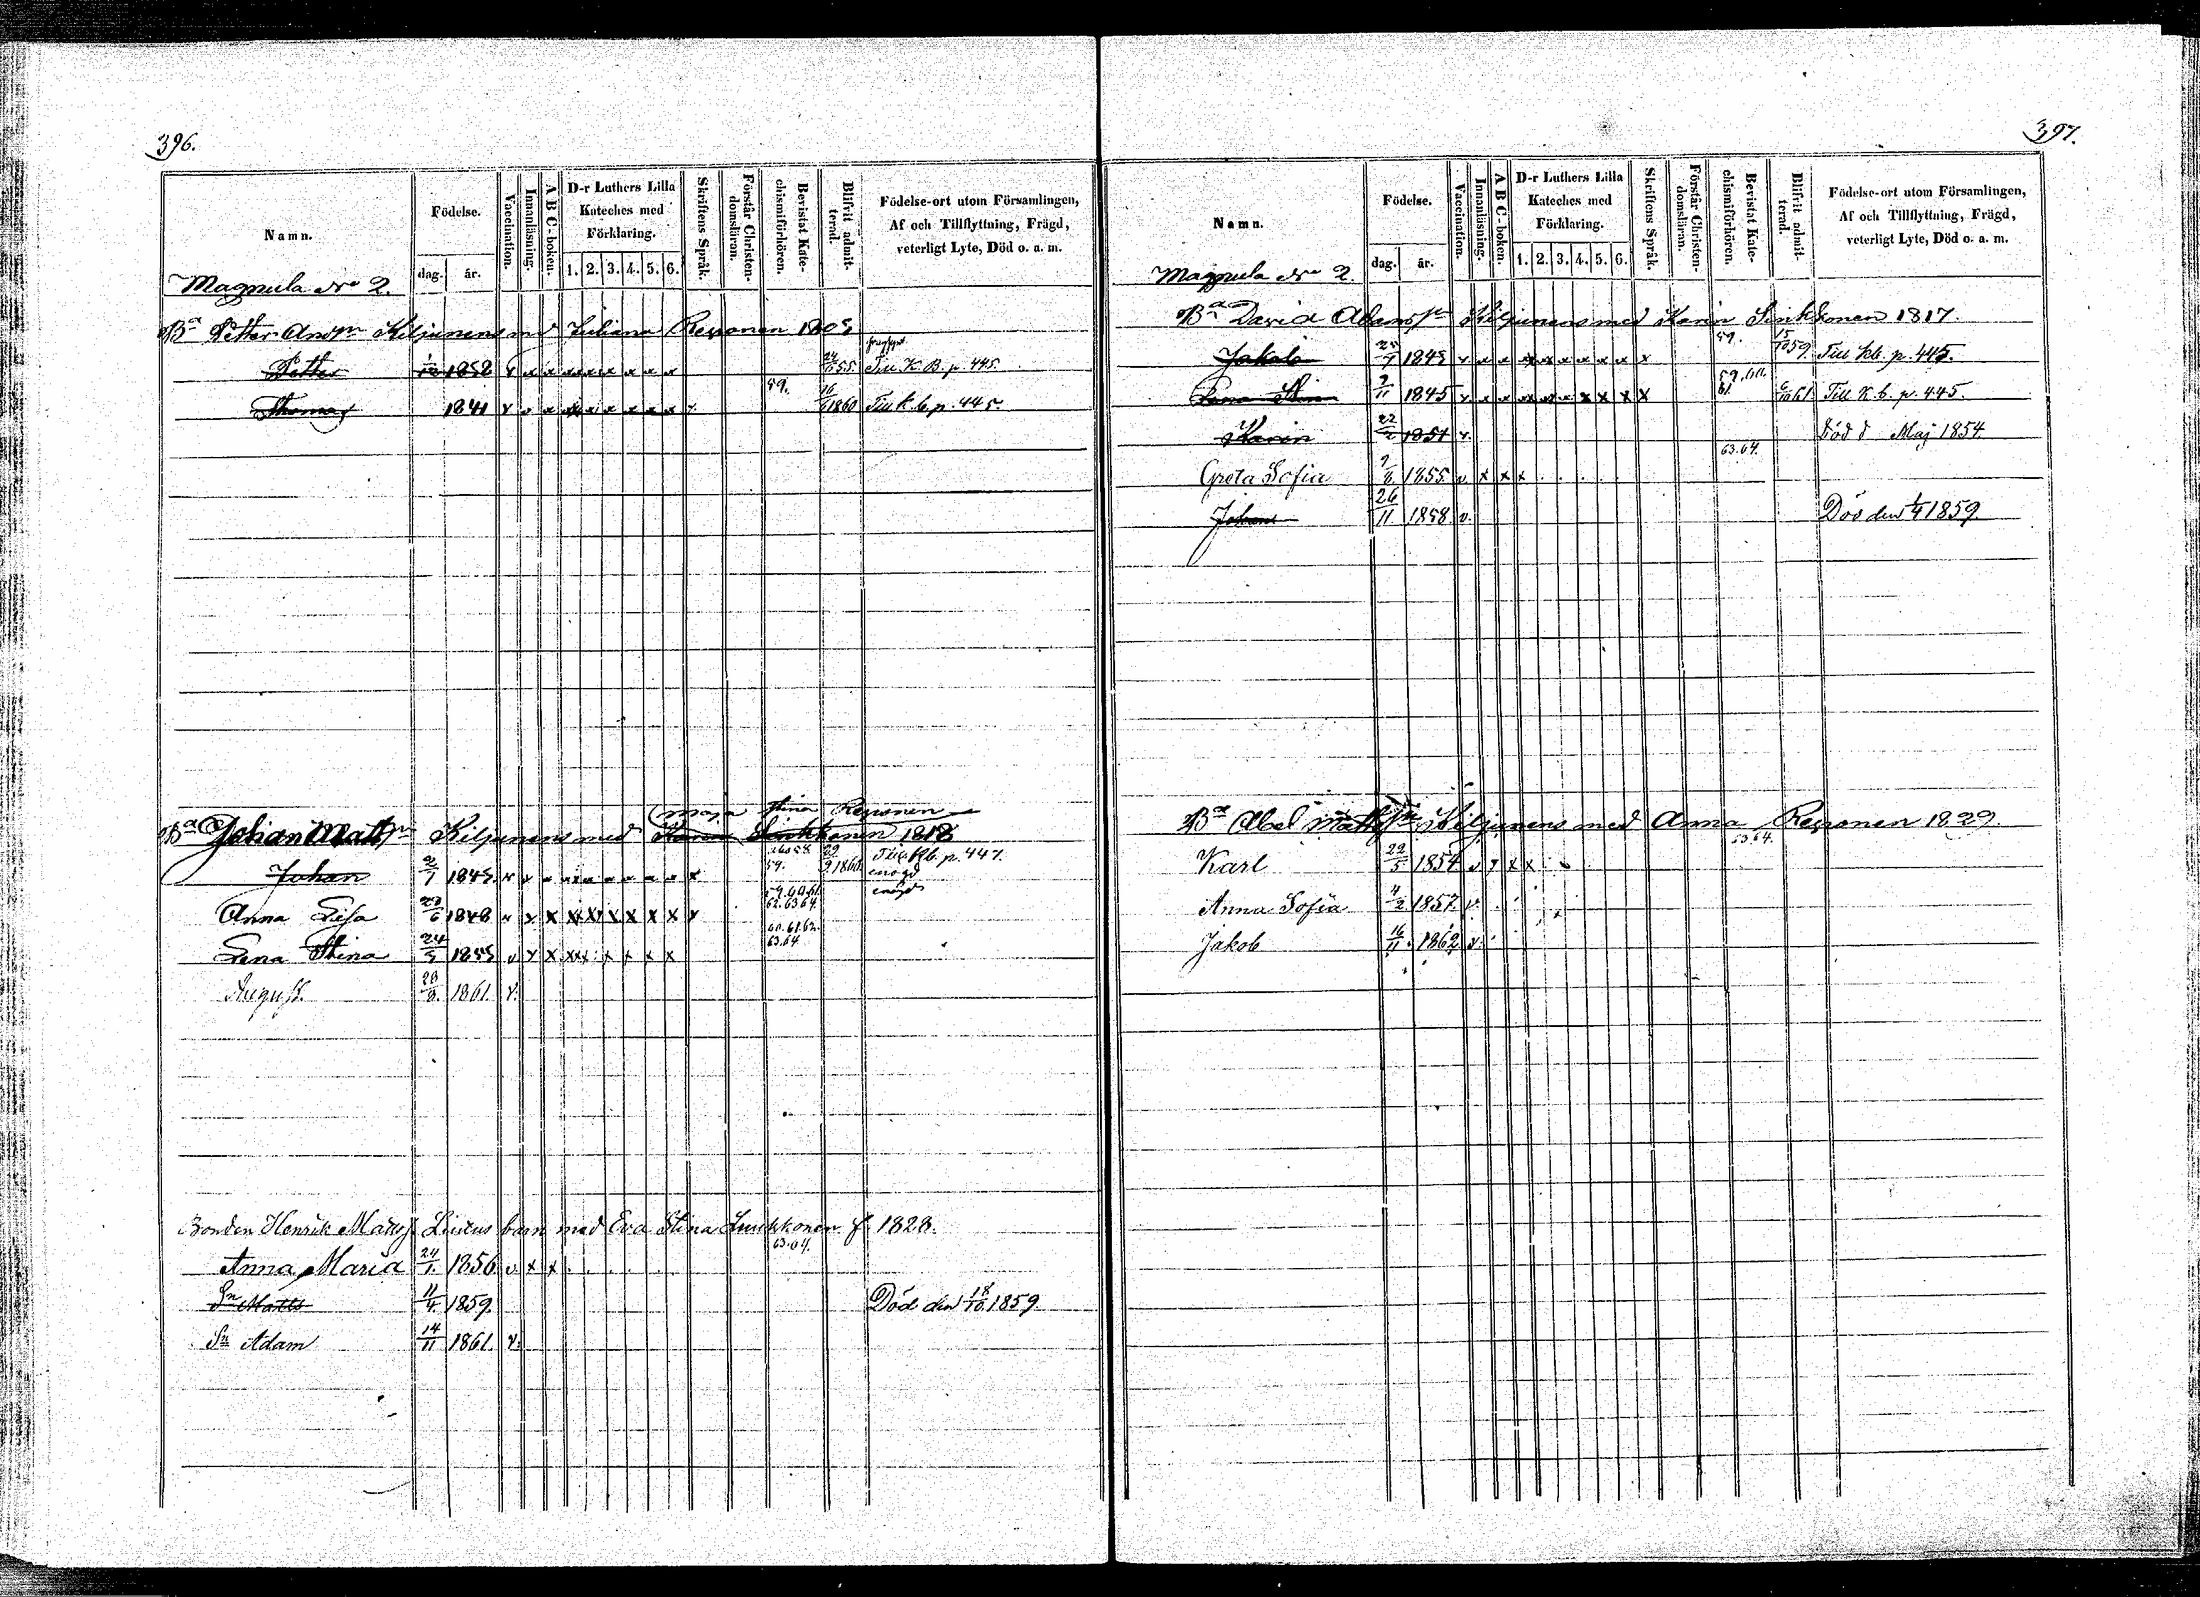 396.
Namn. Födelse. dag. år. Vaccination. Innanläsning. A B C-boken. D-r Luthers Lilla Kateches med Förklaring. 1. 2. 3. 4. 5. 6. Skriftens Språk. Förstår Christendomsläran. Bevistat Katechismiförhören. Blifvit admitterad. Födelse-ort utom Församlingen, Af och Tillflyttning, Frägd, veterligt Lyte, Död o. a. m.
Magnula No 2.
Ba Petter Kiljunens med Juliana Reponen
Petter 1838 v x x x x x x x x Till K. B. p. 445.
Thomas 1841 v x x x x x x x x x 59. 1860 Till k. b. p. 445.
Maja Stina Reponen
Ba Johan Matts Kiljunens med Sinkkonen 1818
Johan 2/7 1845 59. Till kb. p. 447.
Anna Lisa 6 1848 v x x x x x x x x x 59.60.61. 62.63.64
Lena Stina 24/5 1855 v x x x x x x x x 60.61.62. 63.64
August. 28/8. 1861. v.
Bonden Henrik Matts barn med Eva Stina f. 1828.
63.64.
Anna Maria 24/1. 1856 v x x
Sn Matts 11/4. 1859. Död den 18/10. 1859.
Sn Adam 14/11 1861. v.
397.
Namn. Födelse. dag. år. Vaccination. Innanläsning. A B C-boken. D-r Luthers Lilla Kateches med Förklaring. 1. 2. 3. 4. 5. 6. Skriftens Språk. Förstår Christendomsläran. Bevistat Katechismiförhören. Blifvit admitterad. Födelse-ort utom Församlingen, Af och Tillflyttning, Frägd, veterligt Lyte, Död o. a. m.
Magnula No 2.
Ba David Adams Kiljunens med Karin Sinkkonen 1817.
Jakob v x x x x x x x x x 59. 59. Till kb. p. 445.
Stina 1845 v x x x x x x x x x 59.60. 61. 61. Till K. b. p. 445.
Karin 22/2 1851 v. Död d Maj 1854.
Greta Sofia 1855 v x x x 63.64.
Johan 26/11 1858 v. Död den 1859.
Ba Abel Matts Kiljunens med Anna Reponen 1829.
63.64.
Karl 22/5 1854
Anna Sofia 4/2 1857 v.
Jakob 16/11. 1862 v.